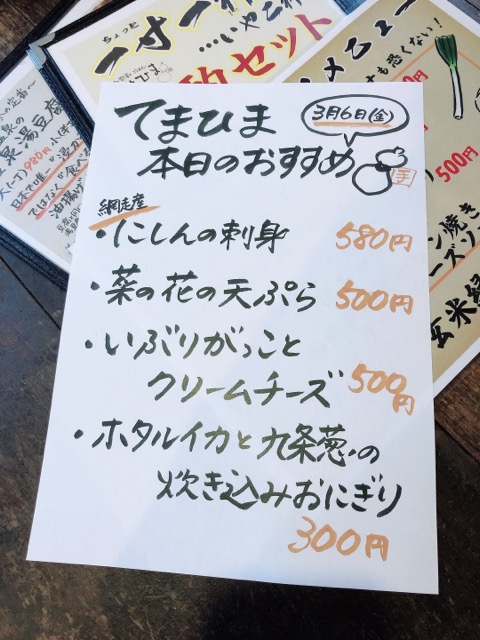 てまひま
3月6日(金)
本日のおすすめ
網走産
・にしんの刺身 580円
・菜の花の天ぷら 500円
・いぶりがっこと
クリームチーズ 500円
・ホタルイカと九条葱の
炊き込みおにぎり
300円
ちょっと
セット
500円
玄米